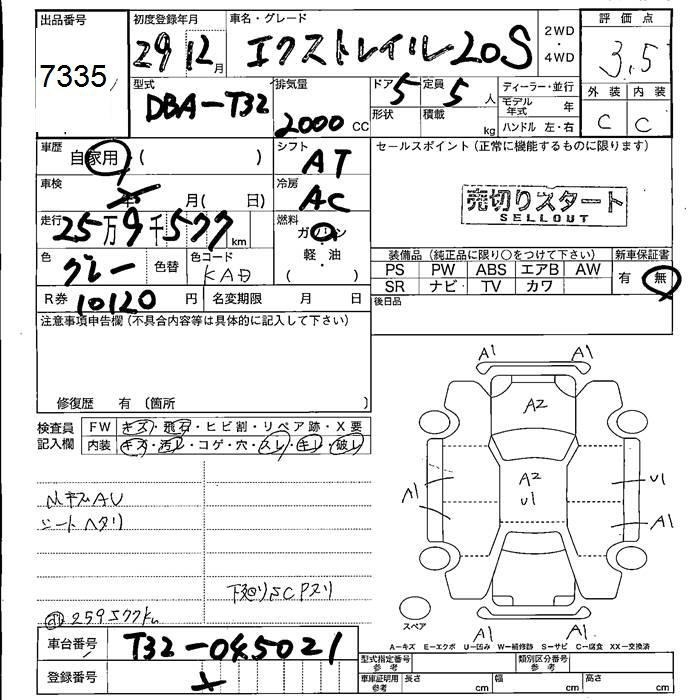 出品番号
7335
初度登録年月
29 12月
車名・グレード
エクストレイル 20S
2WD
・
4WD
評価点
3.5
外装 内装
C C
型式
DBA-T32
排気量
2000 cc
ドア 5
定員 5人
形状
積載 kg
ディーラー・並行
モデル年式 年
ハンドル 左・右
車歴
自家用 ( )
シフト
AT
セールスポイント (正常に機能するものに限ります)
車検
年 月( 日)
冷房
AC
売切りスタート
SELLOUT
走行
25万9千577 km
燃料
ガソリン
・
軽油
( )
色
グレー
色替
色コード
KAD
装備品 (純正品に限り○をつけて下さい)
新車保証書
PS PW ABS エアB AW
SR ナビ TV カワ
有 無
R券 10120 円
名変期限 月 日
後日品
注意事項申告欄 (不具合内容等は具体的に記入して下さい)
修復歴 有 (箇所 )
検査員
記入欄
FW キズ・飛石・ヒビ割・リペア跡・X要
内装 キズ・汚レ・コゲ・穴・スレ・キレ・破レ
シートヘタリ
259577km
A1 A1
A2
A2
U1
A1
U1
A1
A1 A1
スペア
A-キズ E-エクボ U-凹み W-補修跡 S-サビ C-腐食 XX-交換済
車台番号
T32-045021
登録番号
型式指定番号
参考
類別区分番号
参考
車庫証明用
参考
長さ cm 幅 cm 高さ cm